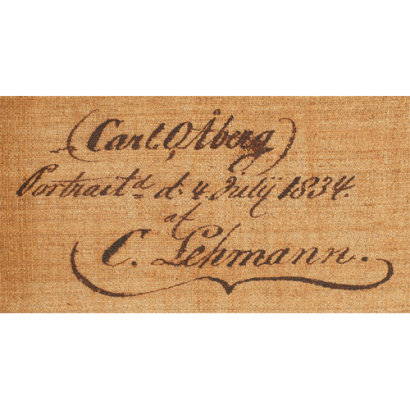 (Carl O. Åberg)
Portrait.d d. 4 Julij 1834.
af
C. Lehmann.